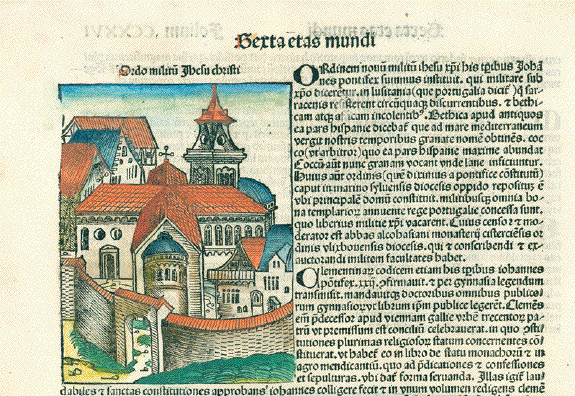 Sexta etas mundi
Ordo militū Jhesu christi
Ordinem nouū militū ihesu xp̄i his tp̄ibus Joha
nes pontifex summus instituit. qui militare sub
xp̄o diceretur. in lusitania (que portugalia dicit̄)
racenis resisterent circūquaqꝫ discurrentibus. ⁊ bethi
cam atqꝫ incolentibꝰ. Bethica apud antiquos
ea pars hispanie dicebat̄ que ad mare mediterraneum
vergit nostris temporibus granate nomē obtinēs. coc
co (vt arbitror) quo ea pars hispanie maxime abundat
Coccū aūt nunc granam vocant vnde lane inficiuntur.
Huius aūt ordinis (quē diximus a pontifice cōstitutū)
caput in marino syluensis diocesis oppido repositū ē
vbi principalē domū constituit. militibusqꝫ omnia bo
na templarioꝝ annuente rege portugalie concessa sunt.
quo liberius militie xp̄i vacarent. Cuius censor ⁊ mo
derator est abbas alcobasiani monasterij cisterciēsis or
dinis vlixbonensis diocesis. qui ⁊ conscribendi ⁊ ex
auctorandi militem facultates habet.
Clementinaꝝ codicem etiam his tp̄ibus iohannes
pōtifex .xxij. ꝯfirmauit. ⁊ per gymnasia legendum
transmisit. mandauitqꝫ doctoribus omnibus publico
rum gymnasioꝝ vt librum ip̄m publice legerēt. Clemēs
em̄ p̄decessor apud viennam gallie vrbē recentior pa
trū vt premissum est conciliū celebrauerat. in quo ꝯsti
tutiones plurimas religiosoꝝ statum concernentes cō
stituerat. vt habet̄ eo in libro de statu monachoꝝ ⁊ in
agro mendicantiū. quo ad p̄dicationes ⁊ confessiones
et sepulturas. vbi dat̄ forma seruanda. Illas igit̄ lau
dabiles ⁊ sanctas constitutiones approbans iohannes colligere fecit ⁊ in vnum volumen redigens clemē